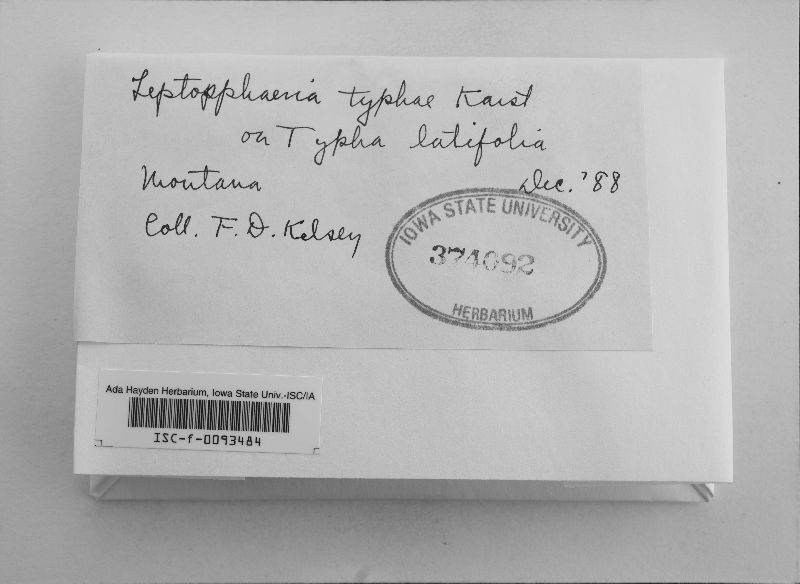 Leptopphaeria typhae Karst
on Typha latifolia
Montana Dec. '88
Coll. F. D. Kelsey
IOWA STATE UNIVERSITY
374092
HERBARIUM
Ada Hayden Herbarium, Iowa State Univ.-ISC/IA
ISC-f-0093484